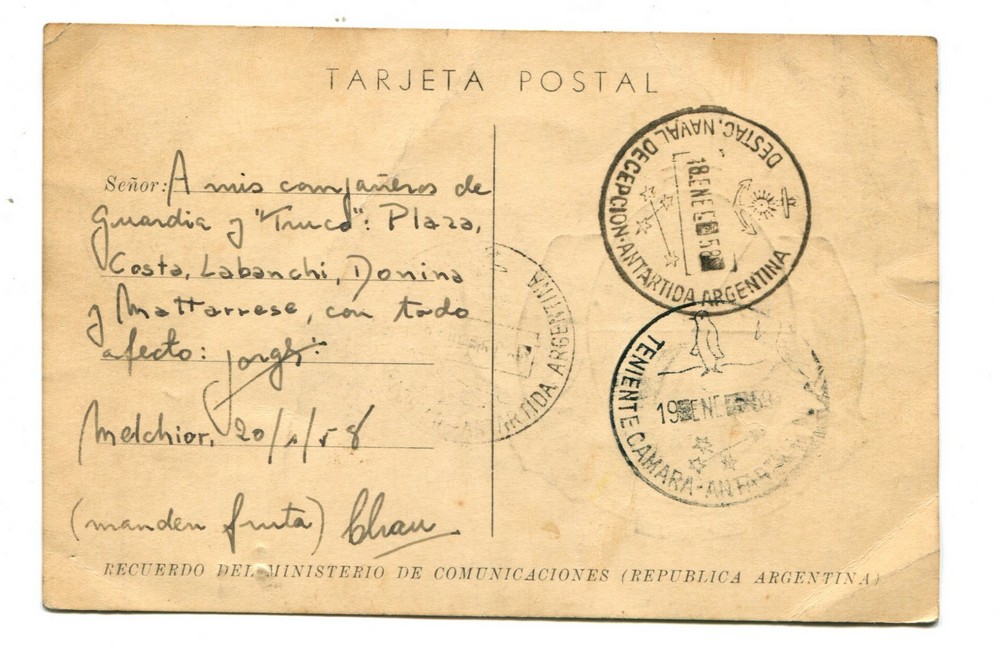 TARJETA POSTAL
Señor: A mis compañeros de
Guardia y "Truco": Plaza,
Costa, Labanchi, Donina
y Mattarrese, con todo
afecto: Jorge
Melchior, 20/1/58
(manden fruta) Chau
DESTAC. NAVAL DECEPCION-ANTARTIDA ARGENTINA
18 ENE 58
TENIENTE CAMARA-ANTARTIDA
19 ENE
ANTARTIDA ARGENTINA
RECUERDO DEL MINISTERIO DE COMUNICACIONES (REPUBLICA ARGENTINA)